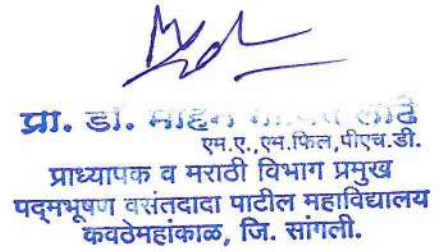 प्रा. डॉ. मोहन लोंढे
एम.ए.,एम.फिल,पीएच.डी.
प्राध्यापक व मराठी विभाग प्रमुख
पद्मभूषण वसंतदादा पाटील महाविद्यालय
कवठेमहांकाळ, जि. सांगली.